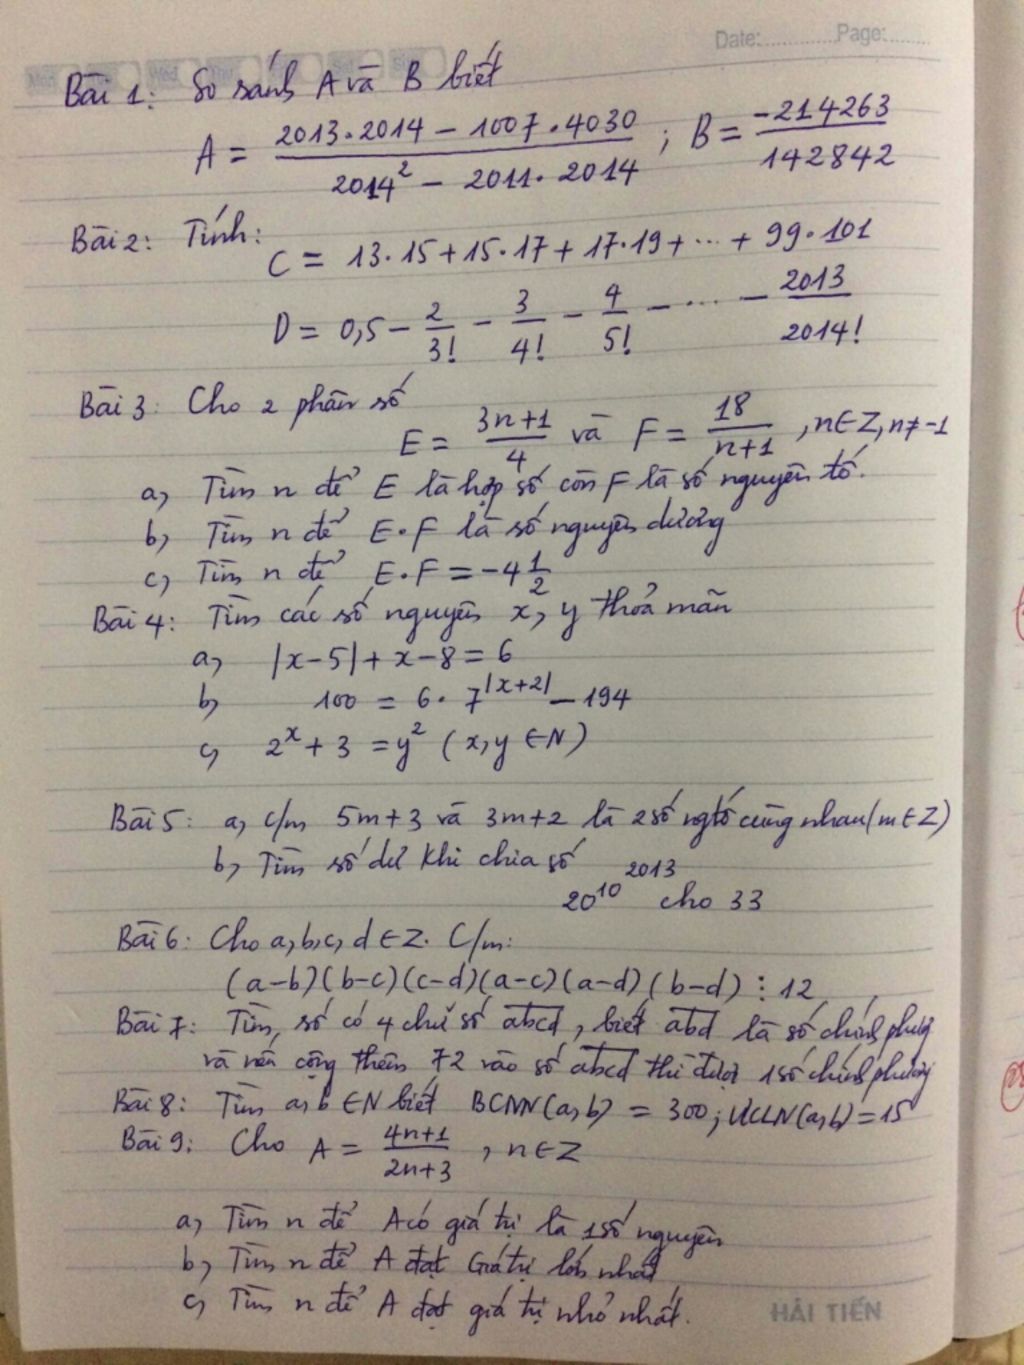 Date:............ Page:.......
Bài 1: So sánh A và B biết
A = \frac{2013.2014 - 1007.4030}{2014^2 - 2011.2014} ; B = \frac{-214263}{142842}
Bài 2: Tính:
C = 13.15 + 15.17 + 17.19 + ... + 99.101
D = 0,5 - \frac{2}{3!} - \frac{3}{4!} - \frac{4}{5!} - ... - \frac{2013}{2014!}
Bài 3: Cho 2 phân số
E = \frac{3n+1}{4} và F = \frac{18}{n+1} , n∈Z, n≠-1
a, Tìm n để E là hợp số còn F là số nguyên tố.
b, Tìm n để E.F là số nguyên dương
c, Tìm n để E.F = -4\frac{1}{2}
Bài 4: Tìm các số nguyên x, y thoả mãn
a, |x-5| + x - 8 = 6
b, 100 = 6.7^{|x+2|} - 194
c, 2^x + 3 = y^2 (x,y ∈N)
Bài 5: a, c/m 5m+3 và 3m+2 là 2 số ngtố cùng nhau (m∈Z)
b, Tìm số dư khi chia số
20^{10^{2013}} cho 33
Bài 6: Cho a,b,c,d ∈Z. C/m:
(a-b)(b-c)(c-d)(a-c)(a-d)(b-d) ⋮ 12
Bài 7: Tìm số có 4 chữ số \overline{abcd}, biết \overline{abd} là số chính phương
và nếu cộng thêm 72 vào số \overline{abcd} thì được 1 số chính phương
Bài 8: Tìm a,b ∈N biết BCNN(a,b) = 300; ƯCLN(a,b) = 15
Bài 9: Cho A = \frac{4n+1}{2n+3} , n∈Z
a, Tìm n để A có giá trị là 1 số nguyên
b, Tìm n để A đạt Giá trị lớn nhất
c, Tìm n để A đạt giá trị nhỏ nhất.
HẢI TIẾN